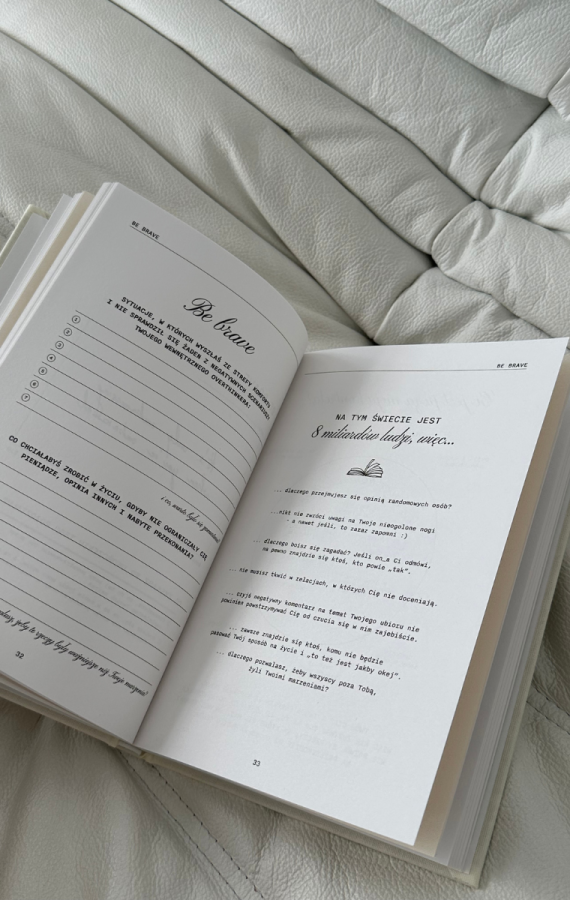 BE BRAVE
Be brave
SYTUACJE, W KTÓRYCH WYSZŁAŚ ZE STREFY KOMFORTU
I NIE SPRAWDZIŁ SIĘ ŻADEN Z NEGATYWNYCH SCENARIUSZY
TWOJEGO WEWNĘTRZNEGO OVERTHINKERA:
1
2
3
4
5
6
7
i co, warto było się
CO CHCIAŁABYŚ ZROBIĆ W ŻYCIU, GDYBY NIE OGRANICZAŁY CIĘ
PIENIĄDZE, OPINIA INNYCH I NABYTE PRZEKONANIA?
Twoje marzenia!
32
BE BRAVE
NA TYM ŚWIECIE JEST
8 miliardów ludzi, więc...
... dlaczego przejmujesz się opinią randomowych osób?
...nikt nie zwróci uwagi na Twoje nieogolone nogi
- a nawet jeśli, to zaraz zapomni :)
... dlaczego boisz się zagadać? Jeśli on_a Ci odmówi,
na pewno znajdzie się ktoś, kto powie „tak”.
... nie musisz tkwić w relacjach, w których Cię nie doceniają.
... czyjś negatywny komentarz na temat Twojego ubioru nie
powinien powstrzymywać Cię od czucia się w nim zajebiście.
... zawsze znajdzie się ktoś, komu nie będzie
pasował Twój sposób na życie i „to też jest jakby okej”.
... dlaczego pozwalasz, żeby wszyscy poza Tobą,
żyli Twoimi marzeniami?
33